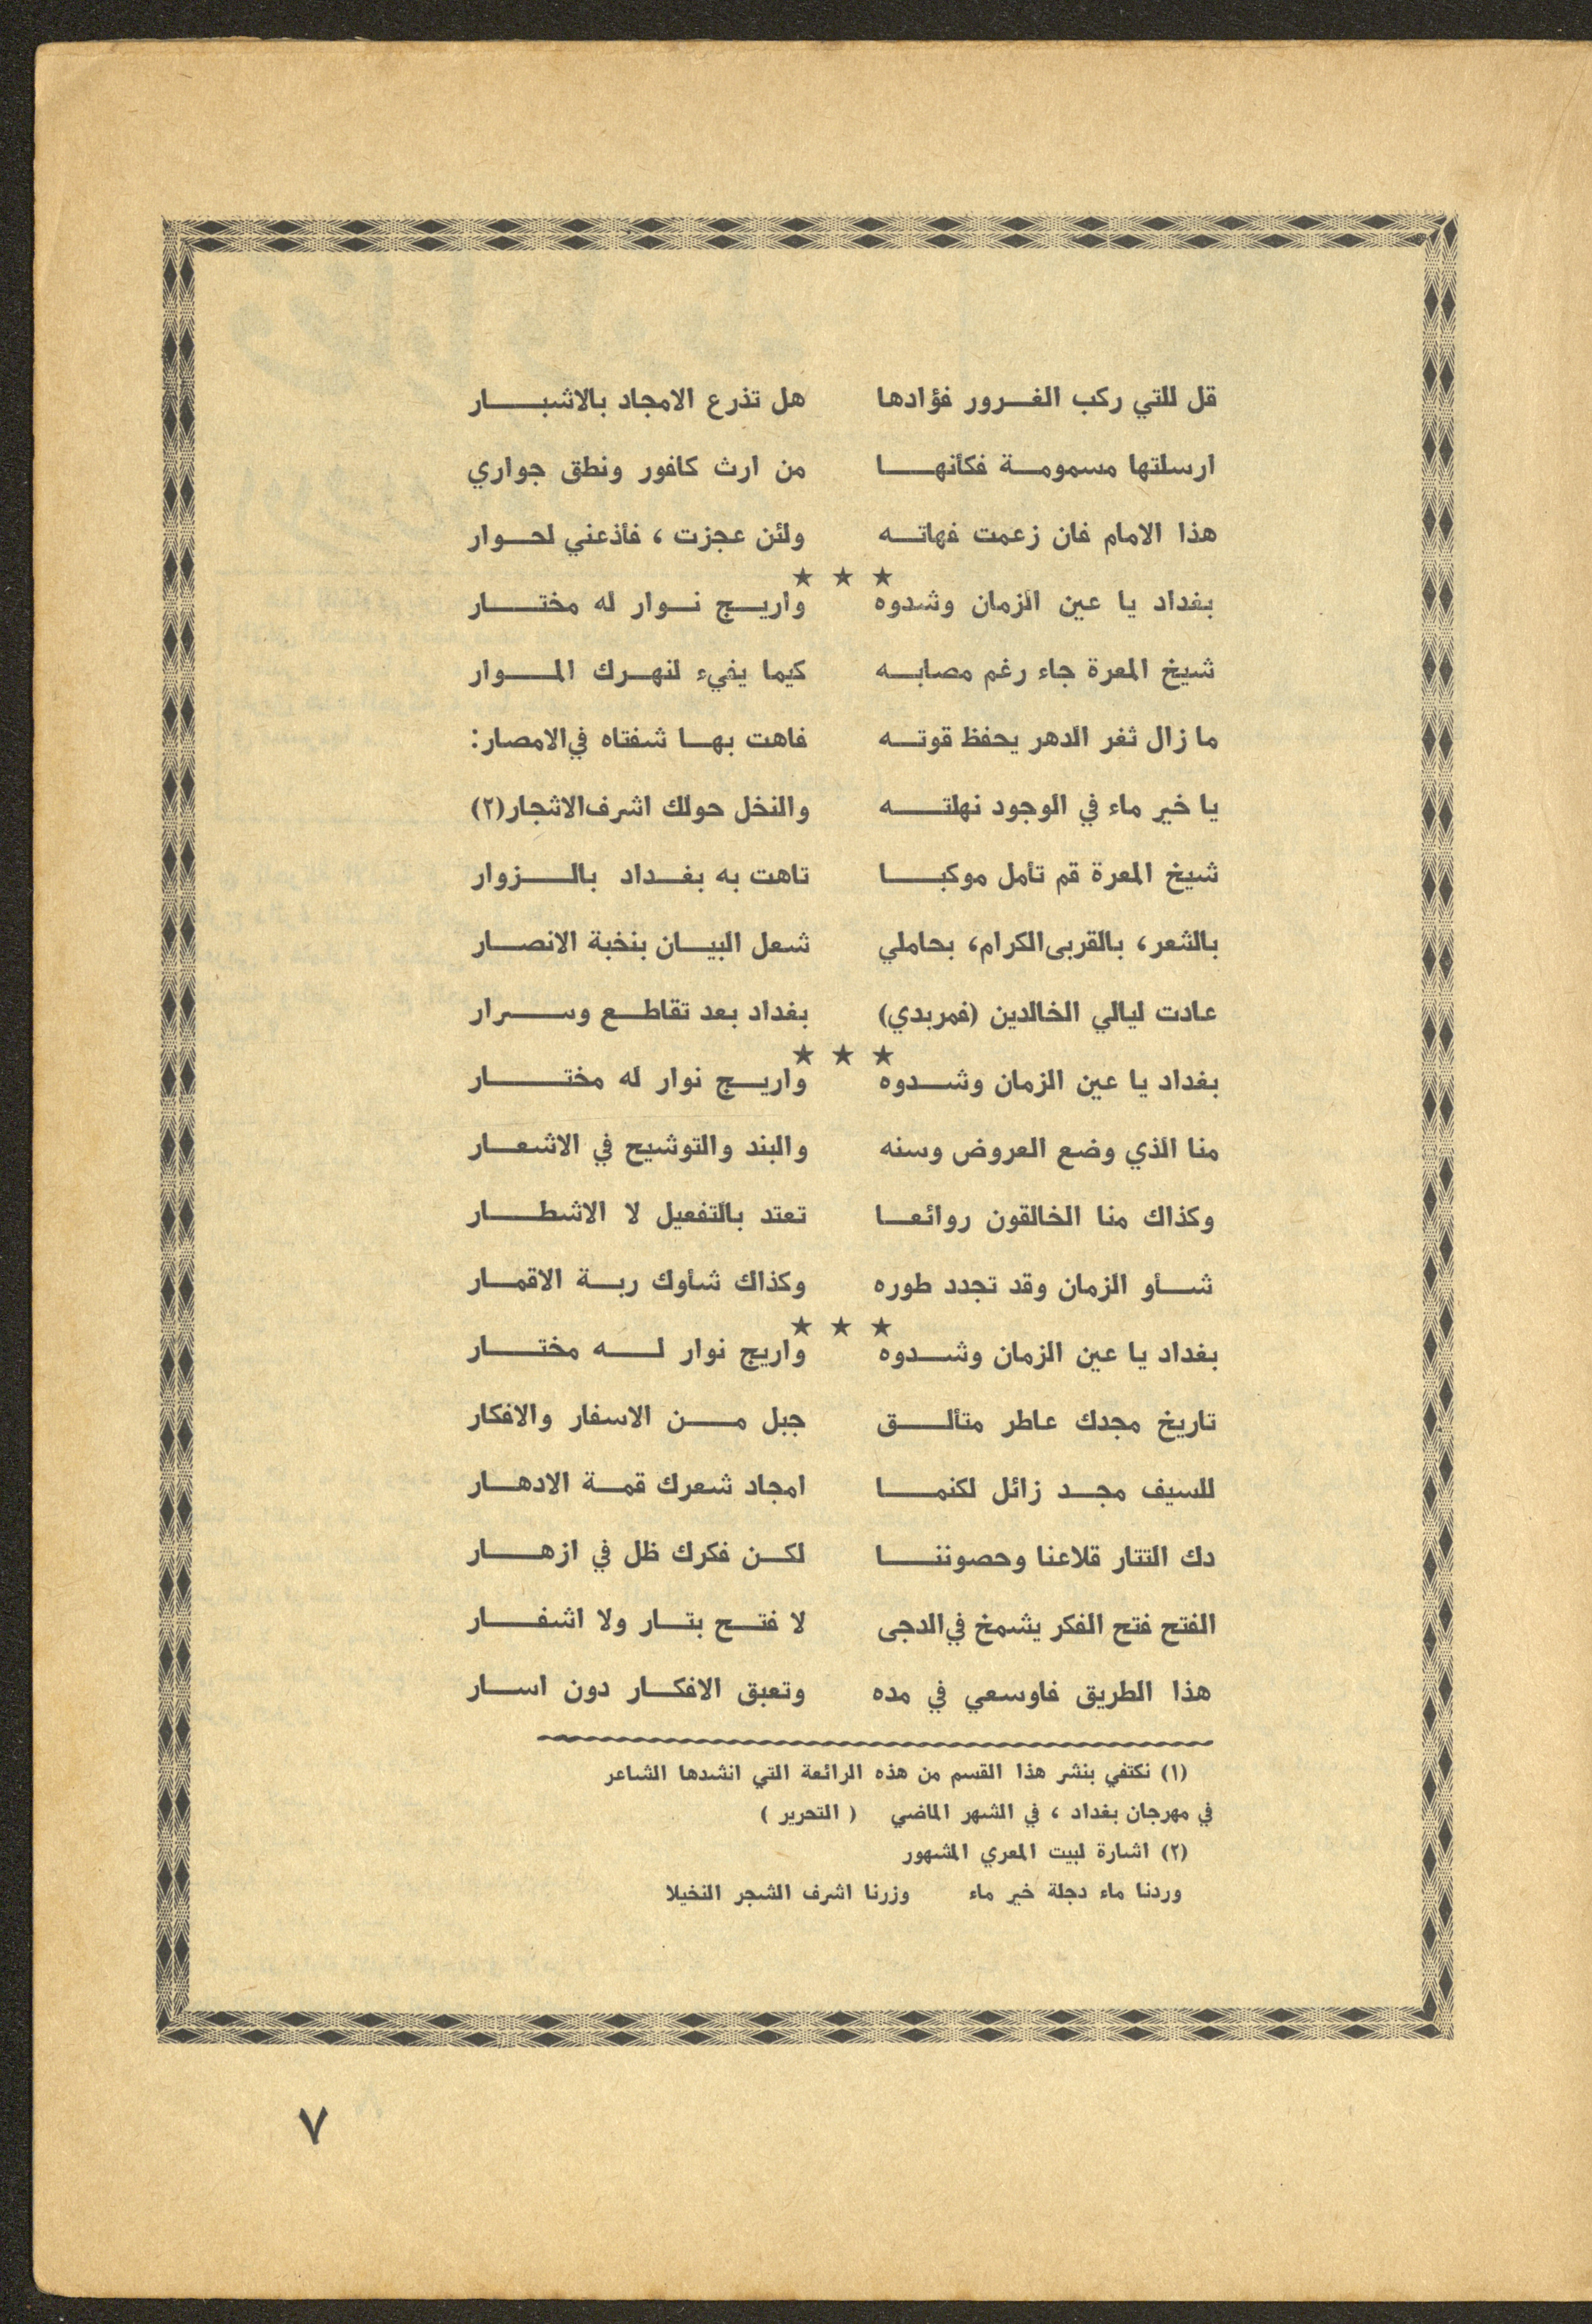 قل للتي ركب الغرور فؤادها هل تذرع الامجاد بالاشبار
ارسلتها مسمومة فكأنها من ارث كافور ونطق جواري
هذا الامام فان زعمت فهاته ولئن عجزت ، فأذعني لحوار
★ ★ ★
بغداد يا عين الزمان وشدوه واريج نوار له مختار
شيخ المعرة جاء رغم مصابه كيما يفيء لنهرك الموار
ما زال ثغر الدهر يحفظ قوته فاهت بها شفتاه في الامصار :
يا خير ماء في الوجود نهلته والنخل حولك اشرف الاشجار (٢)
شيخ المعرة قم تأمل موكبا تاهت به بغداد بالزوار
بالشعر ، بالقربى الكرام ، بحاملي شعل البيان بنخبة الانصار
عادت ليالي الخالدين (فمربدي) بغداد بعد تقاطع وسرار
★ ★ ★
بغداد يا عين الزمان وشدوه واريج نوار له مختار
منا الذي وضع العروض وسنه والبند والتوشيح في الاشعار
وكذاك منا الخالقون روائعا تعتد بالتفعيل لا الاشطار
شأو الزمان وقد تجدد طوره وكذاك شأوك ربة الاقمار
★ ★ ★
بغداد يا عين الزمان وشدوه واريج نوار له مختار
تاريخ مجدك عاطر متألق جبل من الاسفار والافكار
للسيف مجد زائل لكنما امجاد شعرك قمة الادهار
دك التتار قلاعنا وحصوننا لكن فكرك ظل في ازهار
الفتح فتح الفكر يشمخ في الدجى لا فتح بتار ولا اشفار
هذا الطريق فاوسعي في مده وتعبق الافكار دون اسار
(١) نكتفي بنشر هذا القسم من هذه الرائعة التي انشدها الشاعر
في مهرجان بغداد ، في الشهر الماضي ( التحرير )
(٢) اشارة لبيت المعري المشهور
وردنا ماء دجلة خير ماء وزرنا اشرف الشجر النخيلا
٧